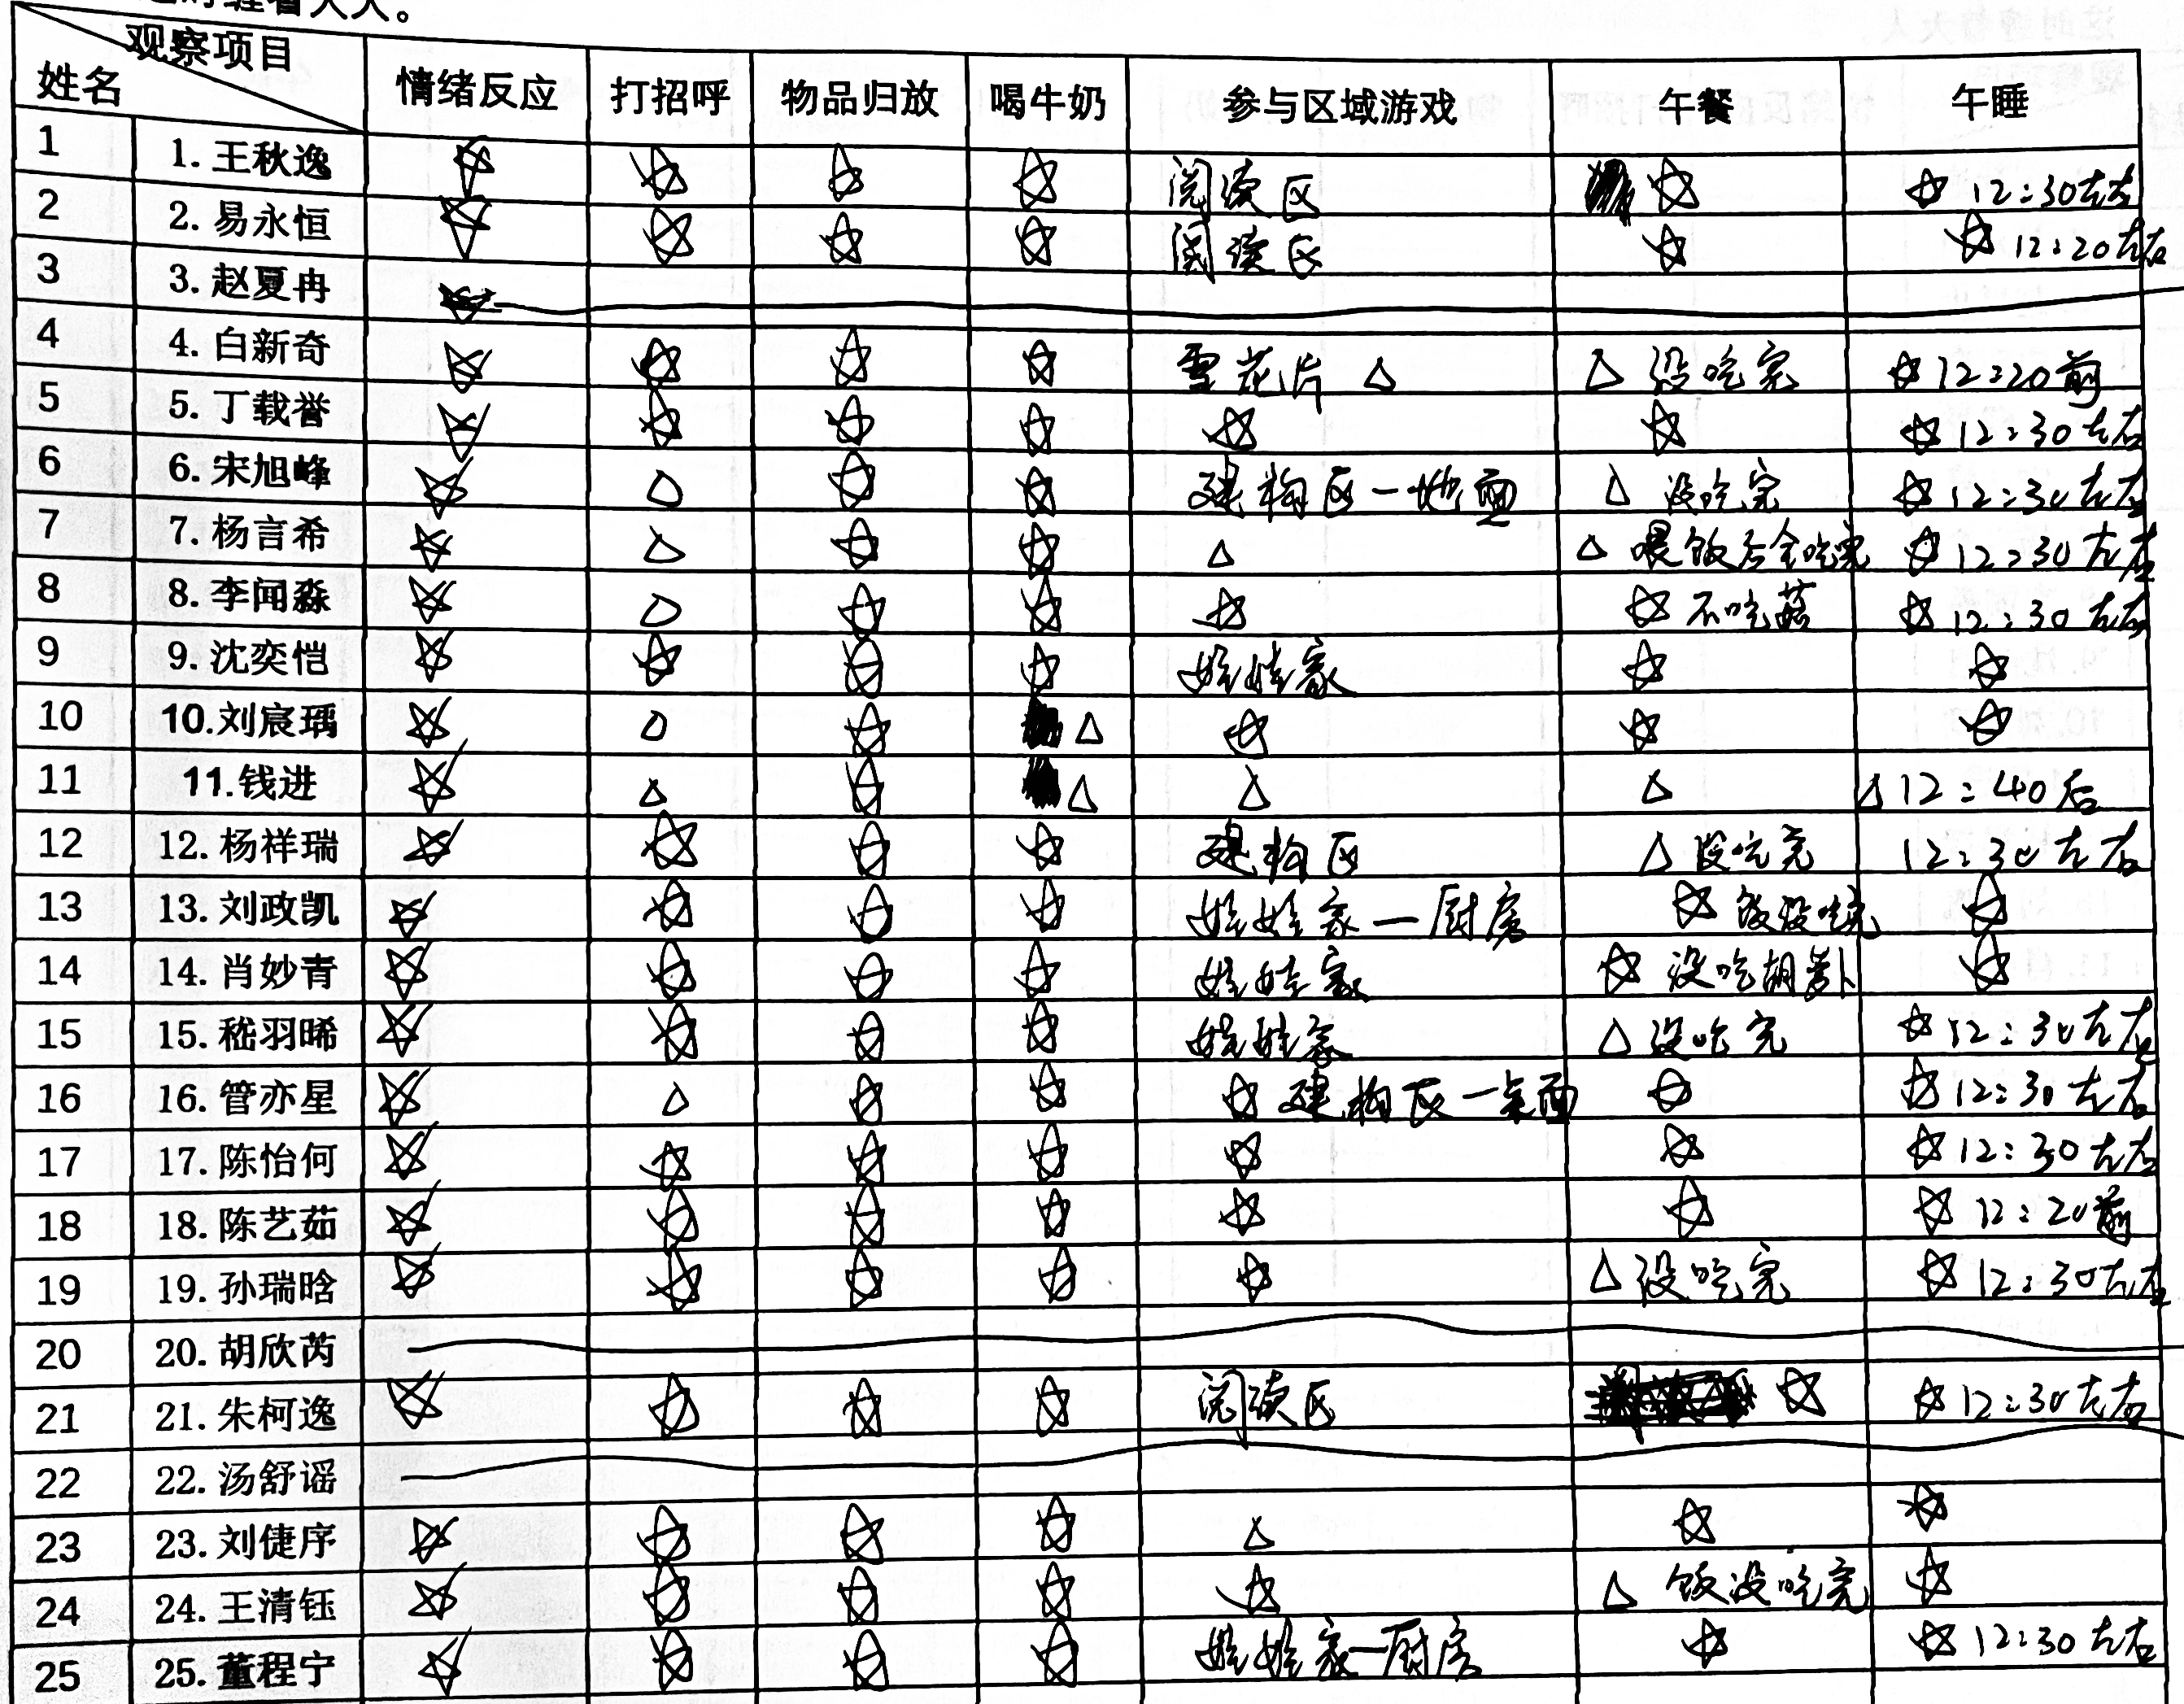 缠着大人。
观察项目
姓名 情绪反应 打招呼 物品归放 喝牛奶 参与区域游戏 午餐 午睡
1 1. 王秋逸 ☆ ☆ ☆ ☆ 阅读区 ☆ ☆ 12:30左右
2 2. 易永恒 ☆ ☆ ☆ ☆ 阅读区 ☆ ☆ 12:20左右
3 3. 赵夏冉
4 4. 白新奇 ☆ ☆ ☆ ☆ 雪花片 △ △ 没吃完 ☆ 12:20前
5 5. 丁载誉 ☆ ☆ ☆ ☆ ☆ ☆ ☆ 12:30左右
6 6. 宋旭峰 ☆ △ ☆ ☆ 建构区一地面 △ 没吃完 ☆ 12:30左右
7 7. 杨言希 ☆ △ ☆ ☆ △ △ 喂饭后全吃完 ☆ 12:30左右
8 8. 李闻淼 ☆ △ ☆ ☆ ☆ ☆ 不吃菇 ☆ 12:30左右
9 9. 沈奕恺 ☆ ☆ ☆ ☆ 娃娃家 ☆ ☆
10 10.刘宸瑀 ☆ △ ☆ △ ☆ ☆ ☆
11 11.钱进 ☆ △ ☆ △ △ △ △ 12:40后
12 12. 杨祥瑞 ☆ ☆ ☆ ☆ 建构区 △ 没吃完 12:30左右
13 13. 刘政凯 ☆ ☆ ☆ ☆ 娃娃家一厨房 ☆ 饭没吃完 ☆
14 14. 肖妙青 ☆ ☆ ☆ ☆ 娃娃家 ☆ 没吃胡萝卜 ☆
15 15. 嵇羽晞 ☆ ☆ ☆ ☆ 娃娃家 △ 没吃完 ☆ 12:30左右
16 16. 管亦星 ☆ △ ☆ ☆ ☆ 建构区一桌面 ☆ ☆ 12:30左右
17 17. 陈怡何 ☆ ☆ ☆ ☆ ☆ ☆ ☆ 12:30左右
18 18. 陈艺茹 ☆ ☆ ☆ ☆ ☆ ☆ ☆ 12:20前
19 19. 孙瑞晗 ☆ ☆ ☆ ☆ ☆ △ 没吃完 ☆ 12:30左右
20 20. 胡欣芮
21 21. 朱柯逸 ☆ ☆ ☆ ☆ 阅读区 ☆ ☆ 12:30左右
22 22. 汤舒谣
23 23. 刘倢序 ☆ ☆ ☆ ☆ △ ☆ ☆
24 24. 王清钰 ☆ ☆ ☆ ☆ ☆ △ 饭没吃完 ☆
25 25. 董程宁 ☆ ☆ ☆ ☆ 娃娃家一厨房 ☆ ☆ 12:30左右